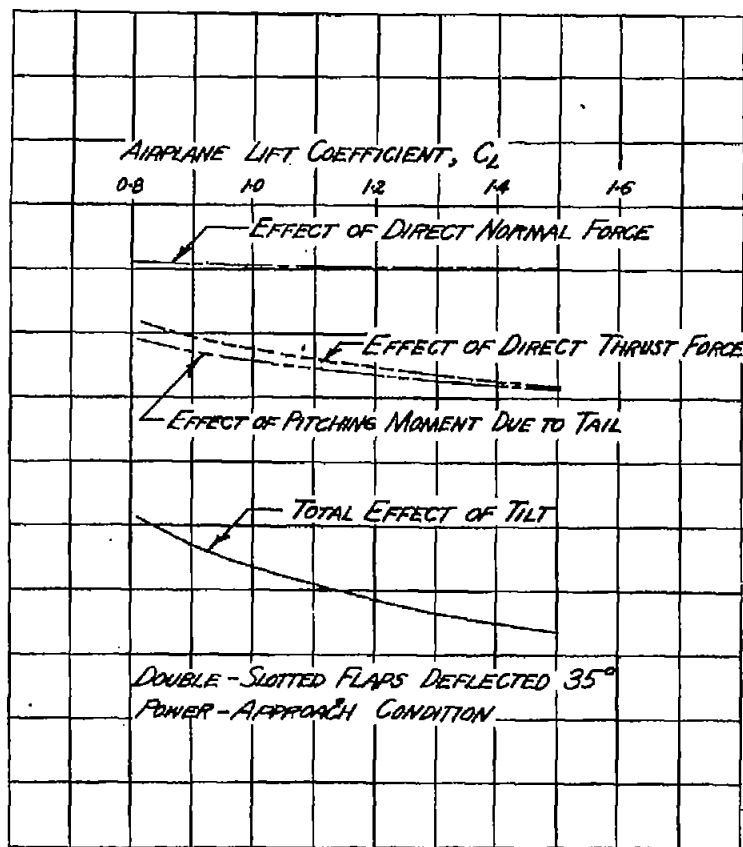 AIRPLANE LIFT COEFFICIENT, CL
0.8 1.0 1.2 1.4 1.6
EFFECT OF DIRECT NORMAL FORCE
EFFECT OF DIRECT THRUST FORCE
EFFECT OF PITCHING MOMENT DUE TO TAIL
TOTAL EFFECT OF TILT
DOUBLE-SLOTTED FLAPS DEFLECTED 35°
POWER-APPROACH CONDITION